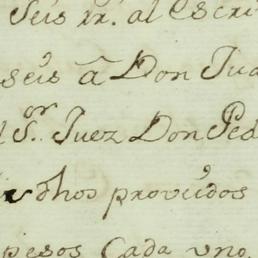 Seis rr.^s al Escri
seis â Don Jua
l S.^or Juez Don Ped
dhos proveidos
pesos Cada uno